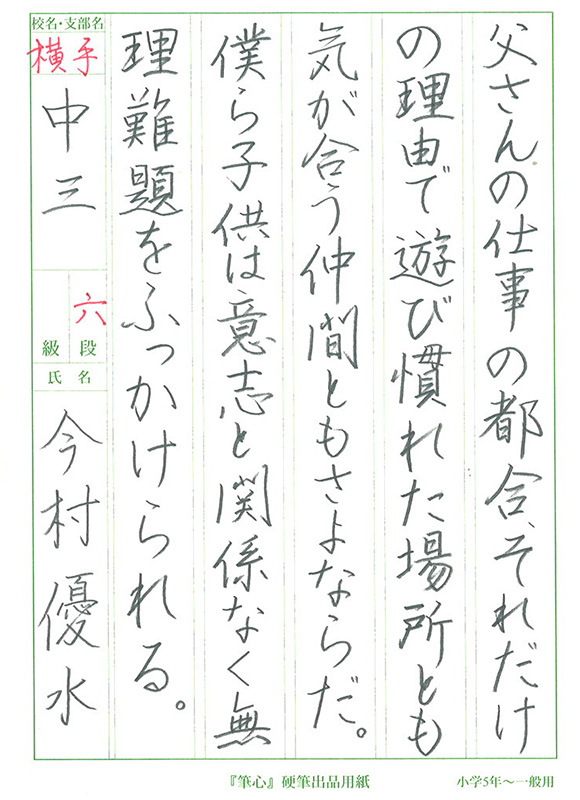 父さんの仕事の都合、それだけ
の理由で遊び慣れた場所とも
気が合う仲間ともさよならだ。
僕ら子供は意志と関係なく無
理難題をふっかけられる。
校名・支部名
横手
中三
六
段
級
氏名
今村優水
『筆心』硬筆出品用紙
小学5年〜一般用